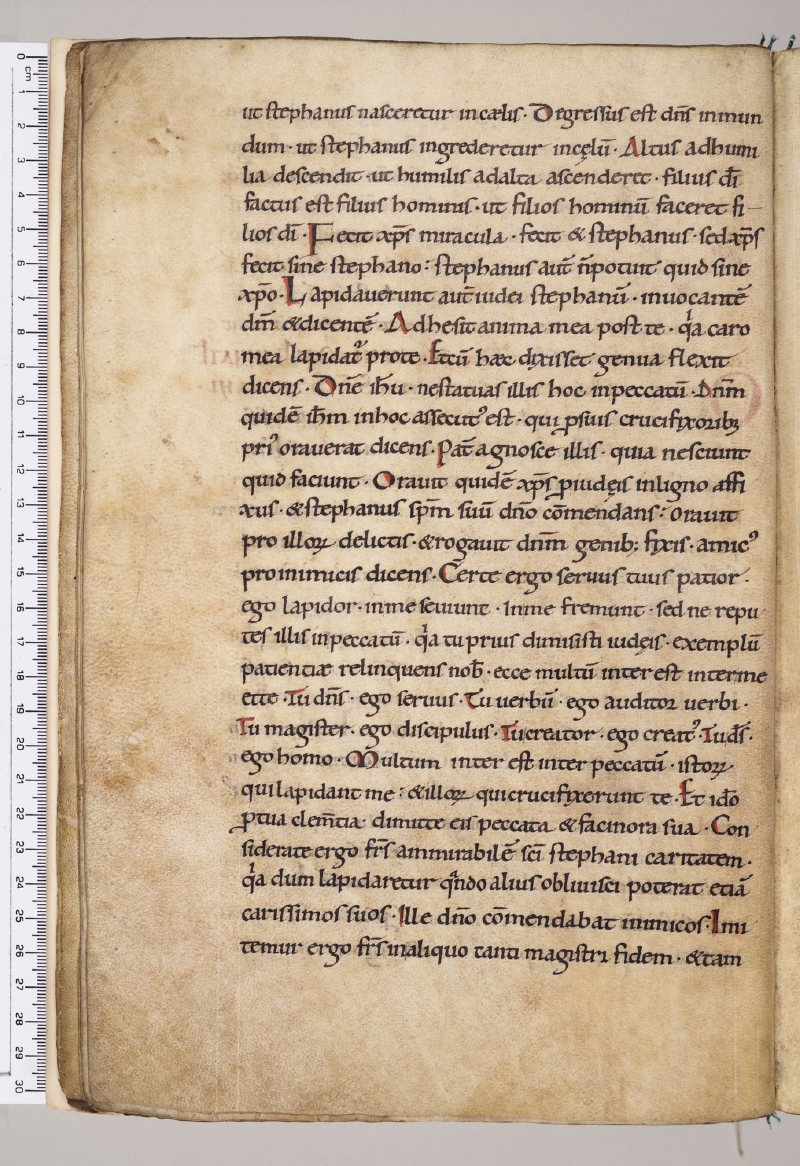 ut stephanus nasceretur in cælis. Degressus est dñs in mun
dum. ut stephanus ingrederetur in cęlū. Altus ad humi
lia descendit. ut humilis ad alta ascenderet. filius dī
factus est filius hominis. ut filios hominū faceret fi
lios dī. Fecit xp̄s miracula. fecit & stephanus. sed xp̄s
fecit sine stephano: stephanus aut̄ n̄ potuit quid sine
xp̄o. Lapidaverunt aut̄ iudei stephanū. invocantē
dn̄m & dicentē. Adhesit anima mea post te. qͥa caro
mea lapidat᷒ pro te. Et cū hæc dixisset genua flexit
dicens. Dn̄e ih̄u. ne statuas illis hoc in peccatū. Dnm̄
quidē ih̄m in hoc assecutꝰ est. qui ꝓ suis crucifixoribꝫ
priꝰ oraverat dicens. Pat̄ agnosce illis. quia nesciunt
quid faciunt. Oravit quidē xp̄s ꝓ iudęis in ligno affi
xus. & stephanus sp̄m suū dn̄o cōmendans: oravit
pro illoꝝ delictis. & rogavit dnm̄ genib; fixis. amicꝰ
pro inimicis dicens. Certe ergo servus tuus patior.
ego lapidor. in me seviunt. in me fremunt. sed ne repu
tes illis in peccatū. qͥa tu prius dimisisti iudęis. exemplū
patientiæ relinquens nob̄. ecce multū interest inter me
et te. Tu dn̄s. ego servus. Tu verbū. ego auditor verbi.
Tu magister. ego discipulus. Tu creator. ego creatꝰ. Tu d̄s.
ego homo. Multum inter est inter peccatū. istoꝝ
qui lapidant me: & illoꝝ qui crucifixerunt te. Et id̄o
ꝓ tua clem̄tia: dimitte eis peccata & facinora sua. Con
siderate ergo fr̄s ammirabilē sc̄i stephani caritatem.
qͥa dum lapidaretur qn̄do alius oblivisci poterat etiā
carissimos suos. Ille dn̄o cōmendabat inimicos. Imi
temur ergo fr̄s in aliquo tanti magistri fidem. & tam